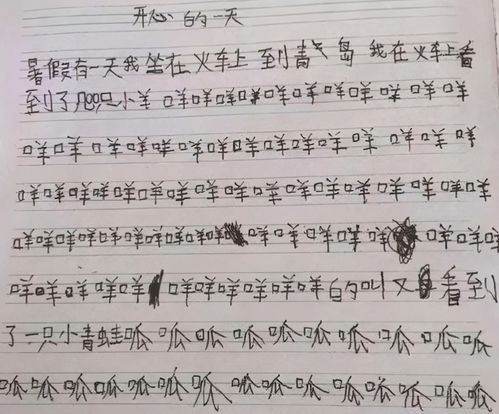 开心的一天
暑假有一天我坐在火车上到青岛我在火车上看
到了几只小羊咩咩咩咩咩咩咩咩咩咩咩咩
咩咩咩咩咩咩咩咩咩咩咩咩咩咩咩咩
咩咩咩咩咩咩咩咩咩咩咩咩咩咩咩咩咩
咩咩咩咩咩咩咩咩咩咩咩咩咩咩咩咩咩
咩咩咩咩咩咩咩咩咩咩咩的叫又看到
了一只小青蛙呱呱呱呱呱呱呱呱呱呱
呱呱呱呱呱呱呱呱呱呱呱呱呱呱